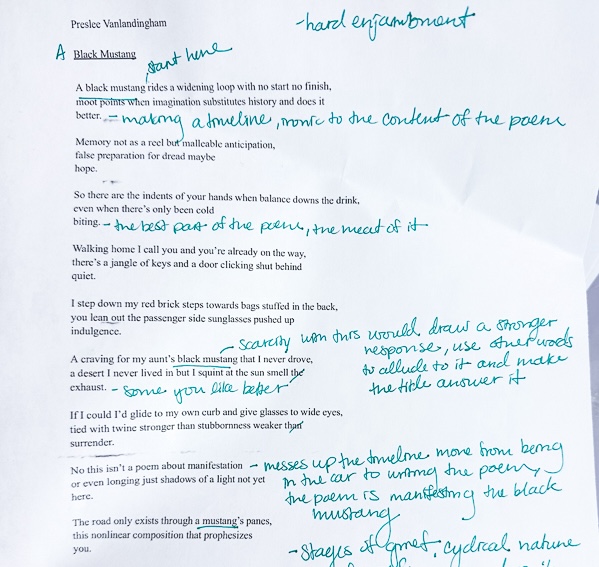 Preslee Vanlandingham
-hard enjambment
A Black Mustang
start here
A black mustang rides a widening loop with no start no finish,
moot points when imagination substitutes history and does it
better. - making a timeline, ironic to the content of the poem
Memory not as a reel but malleable anticipation,
false preparation for dread maybe
hope.
So there are the indents of your hands when balance downs the drink,
even when there's only been cold
biting. - the best part of the poem, the meat of it
Walking home I call you and you're already on the way,
there's a jangle of keys and a door clicking shut behind
quiet.
I step down my red brick steps towards bags stuffed in the back,
you lean out the passenger side sunglasses pushed up
indulgence.
- scarcity with this would draw a stronger
response, use other words
to allude to it and make
the title answer it
A craving for my aunt's black mustang that I never drove,
a desert I never lived in but I squint at the sun smell the
exhaust. - some you like better
If I could I'd glide to my own curb and give glasses to wide eyes,
tied with twine stronger than stubbornness weaker than
surrender.
No this isn't a poem about manifestation - messes up the timeline more from being
or even longing just shadows of a light not yet in the car to writing the poem,
here. the poem is manifesting the black
mustang
The road only exists through a mustang's panes,
this nonlinear composition that prophesizes
you.
- Stages of grief, cyclical nature